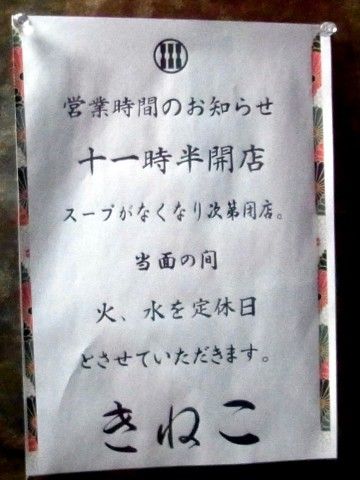 営業時間のお知らせ
十一時半開店
スープがなくなり次第閉店。
当面の間
火、水を定休日
とさせていただきます。
きねこ